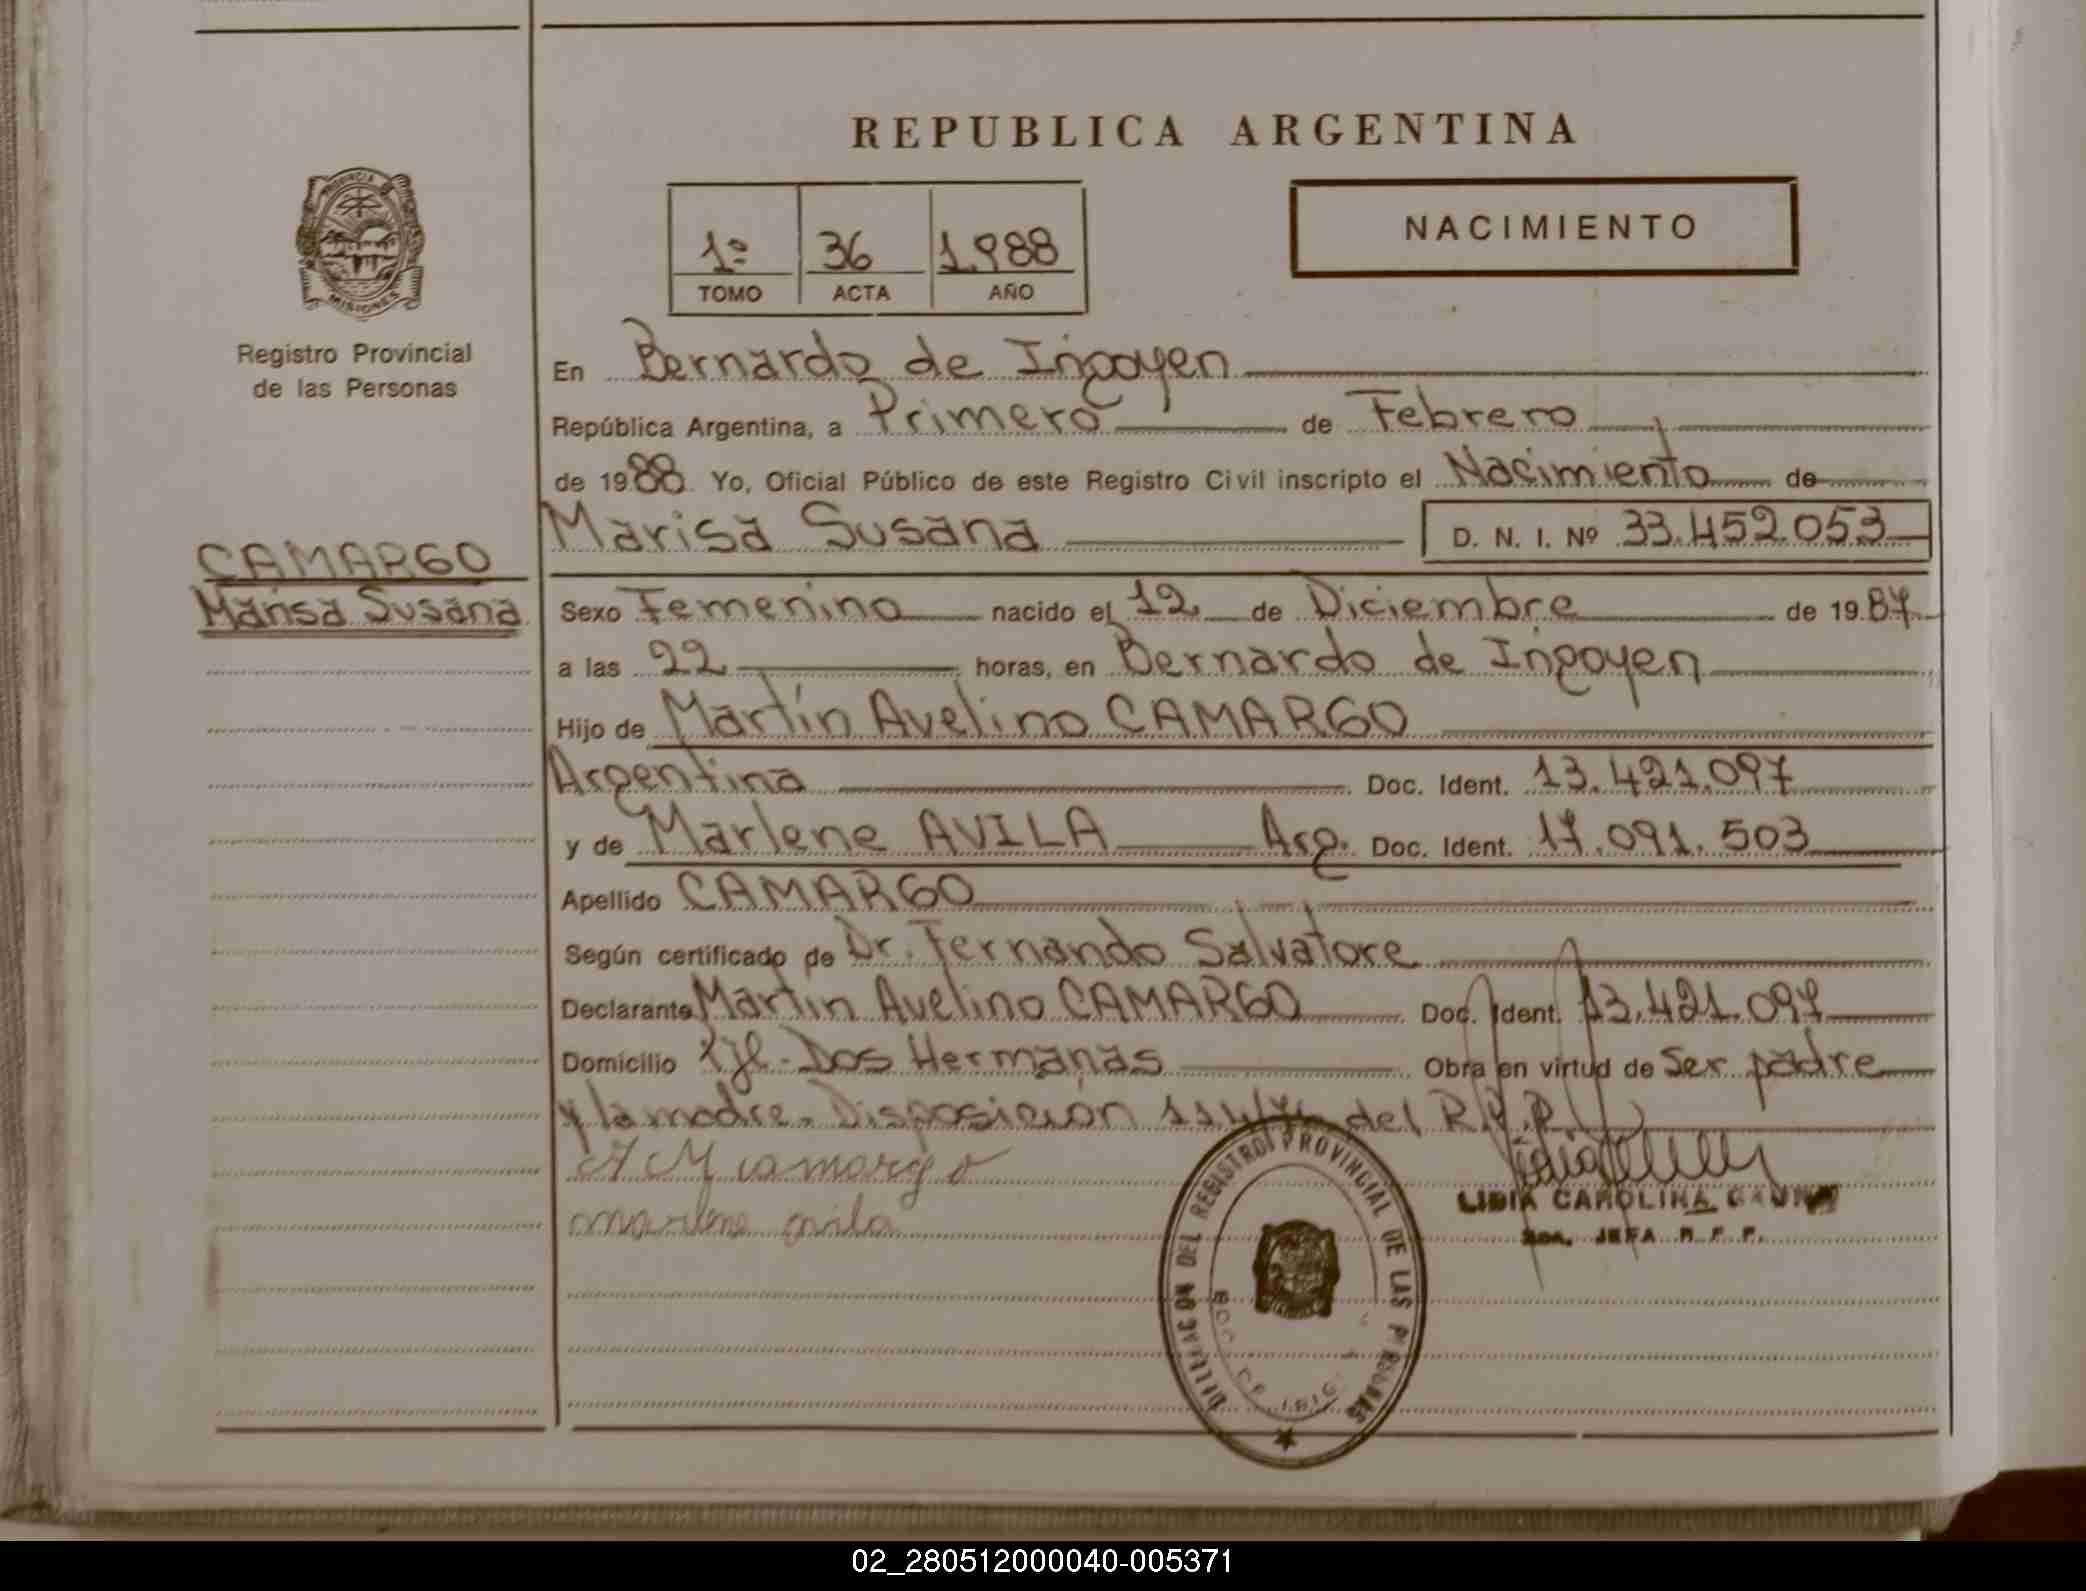 REPUBLICA ARGENTINA
PROVINCIA DE
MISIONES
Registro Provincial
de las Personas
1º 36 1.988
TOMO ACTA AÑO
NACIMIENTO
En Bernardo de Irigoyen
República Argentina, a Primero de Febrero
de 1988. Yo, Oficial Público de este Registro Civil inscripto el Nacimiento de
Marisa Susana D. N. I. Nº 33.452.053
CAMARGO
Marisa Susana
Sexo Femenino nacido el 12 de Diciembre de 1987
a las 22 horas, en Bernardo de Irigoyen
Hijo de Martín Avelino CAMARGO
Argentina Doc. Ident. 13.421.097
y de Marlene AVILA Arg. Doc. Ident. 17.091.503
Apellido CAMARGO
Según certificado de Dr. Fernando Salvatore
Declarante Martín Avelino CAMARGO Doc. Ident. 13.421.097
Domicilio Dos Hermanas Obra en virtud de Ser padre
y la madre. Disposición del R.P.P.
A M camargo
marlene avila
LIDIA CAROLINA
JEFA R. P. P.
DELEGACION DEL REGISTRO PROVINCIAL DE LAS PERSONAS
02_280512000040-005371